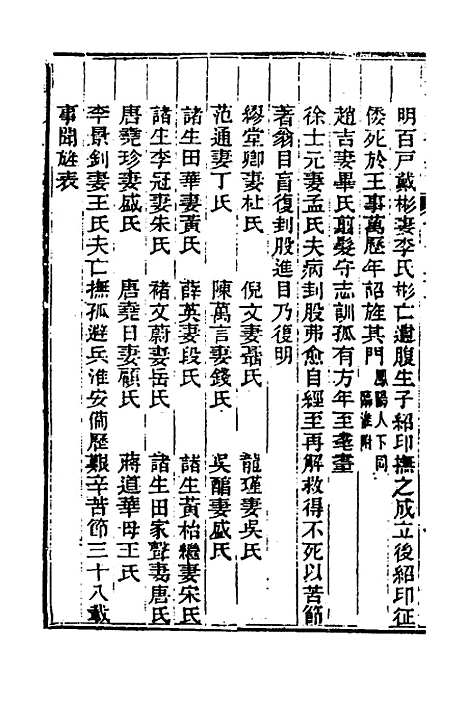 明百戸戴彬妻李氏彬亡遺腹生子紹印撫之成立後紹印征
倭死於王事萬歷年詔旌其門鳳陽人下同臨淮附
趙吉妻畢氏剪髮守志訓孤有方年至耄耋
徐士元妻孟氏夫病刲股弗愈自經至再解救得不死以苦節
著翁目盲復刲股進目乃復明
繆堂卿妻杜氏　倪文妻聶氏　龍瑾妻吳氏
范通妻丁氏　陳萬言妻錢氏　吳酯妻盛氏
諸生田華妻黃氏　薛英妻段氏　諸生黃枱繼妻宋氏
諸生李冠妻朱氏　褚文蔚妻岳氏　諸生田家聲妻唐氏
唐堯珍妻盛氏　唐堯日妻顧氏　蔣道華母王氏
李景釗妻王氏夫亡撫孤避兵淮安備歷艱辛苦節三十八載
事聞旌表